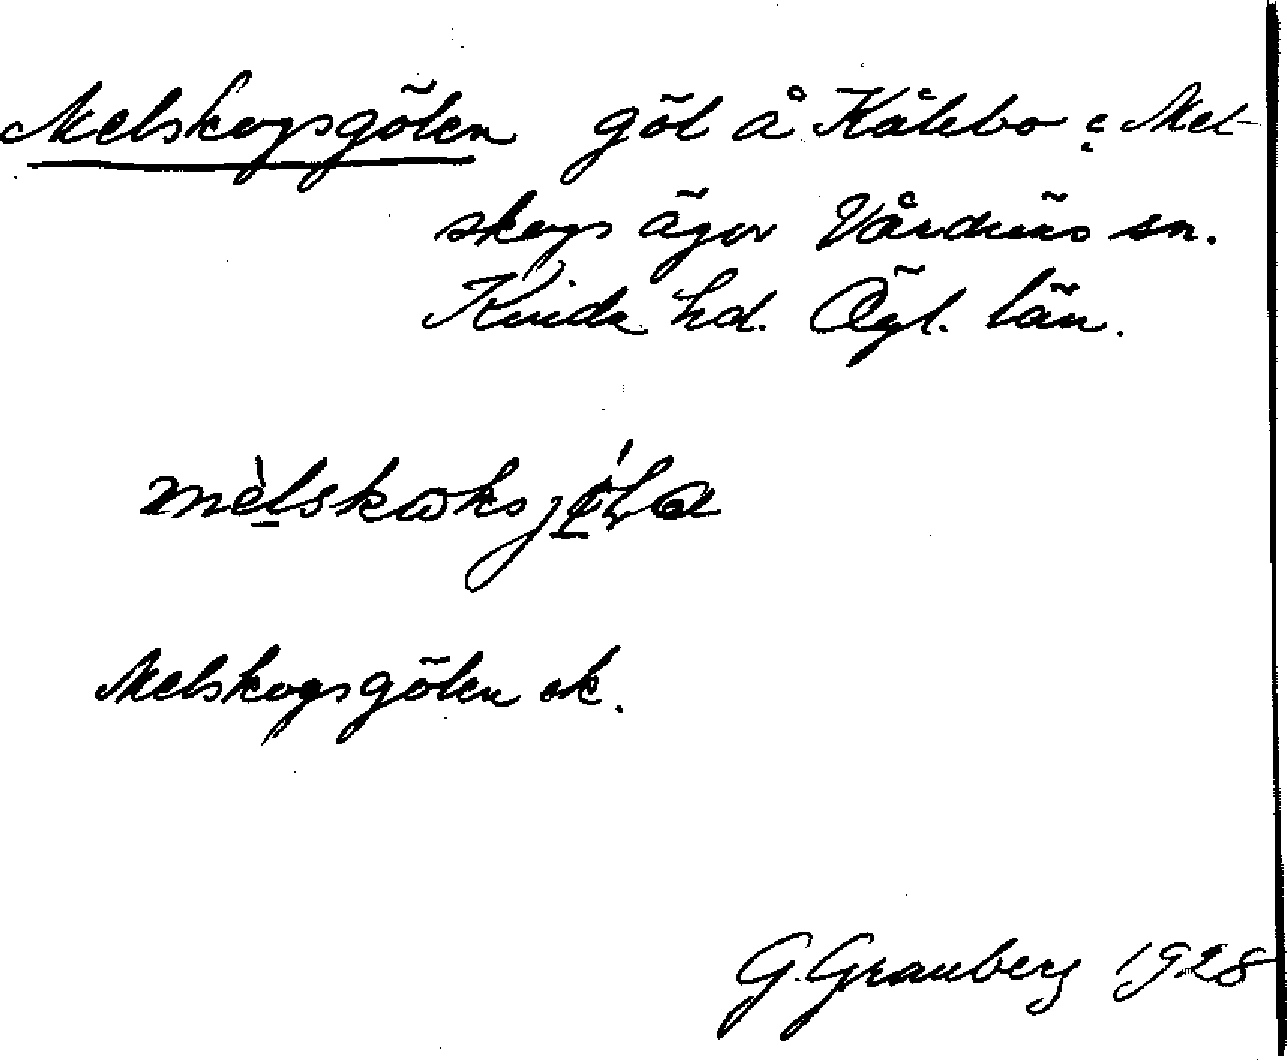 Melskogsgölen göl å Kålebo o Mel-
skogs ägor Vårdnäs sn.
Kinda hd. Ögl. län.
mèlskωksjǿla
Melskogsgölen ek.
G. Granberg 1928